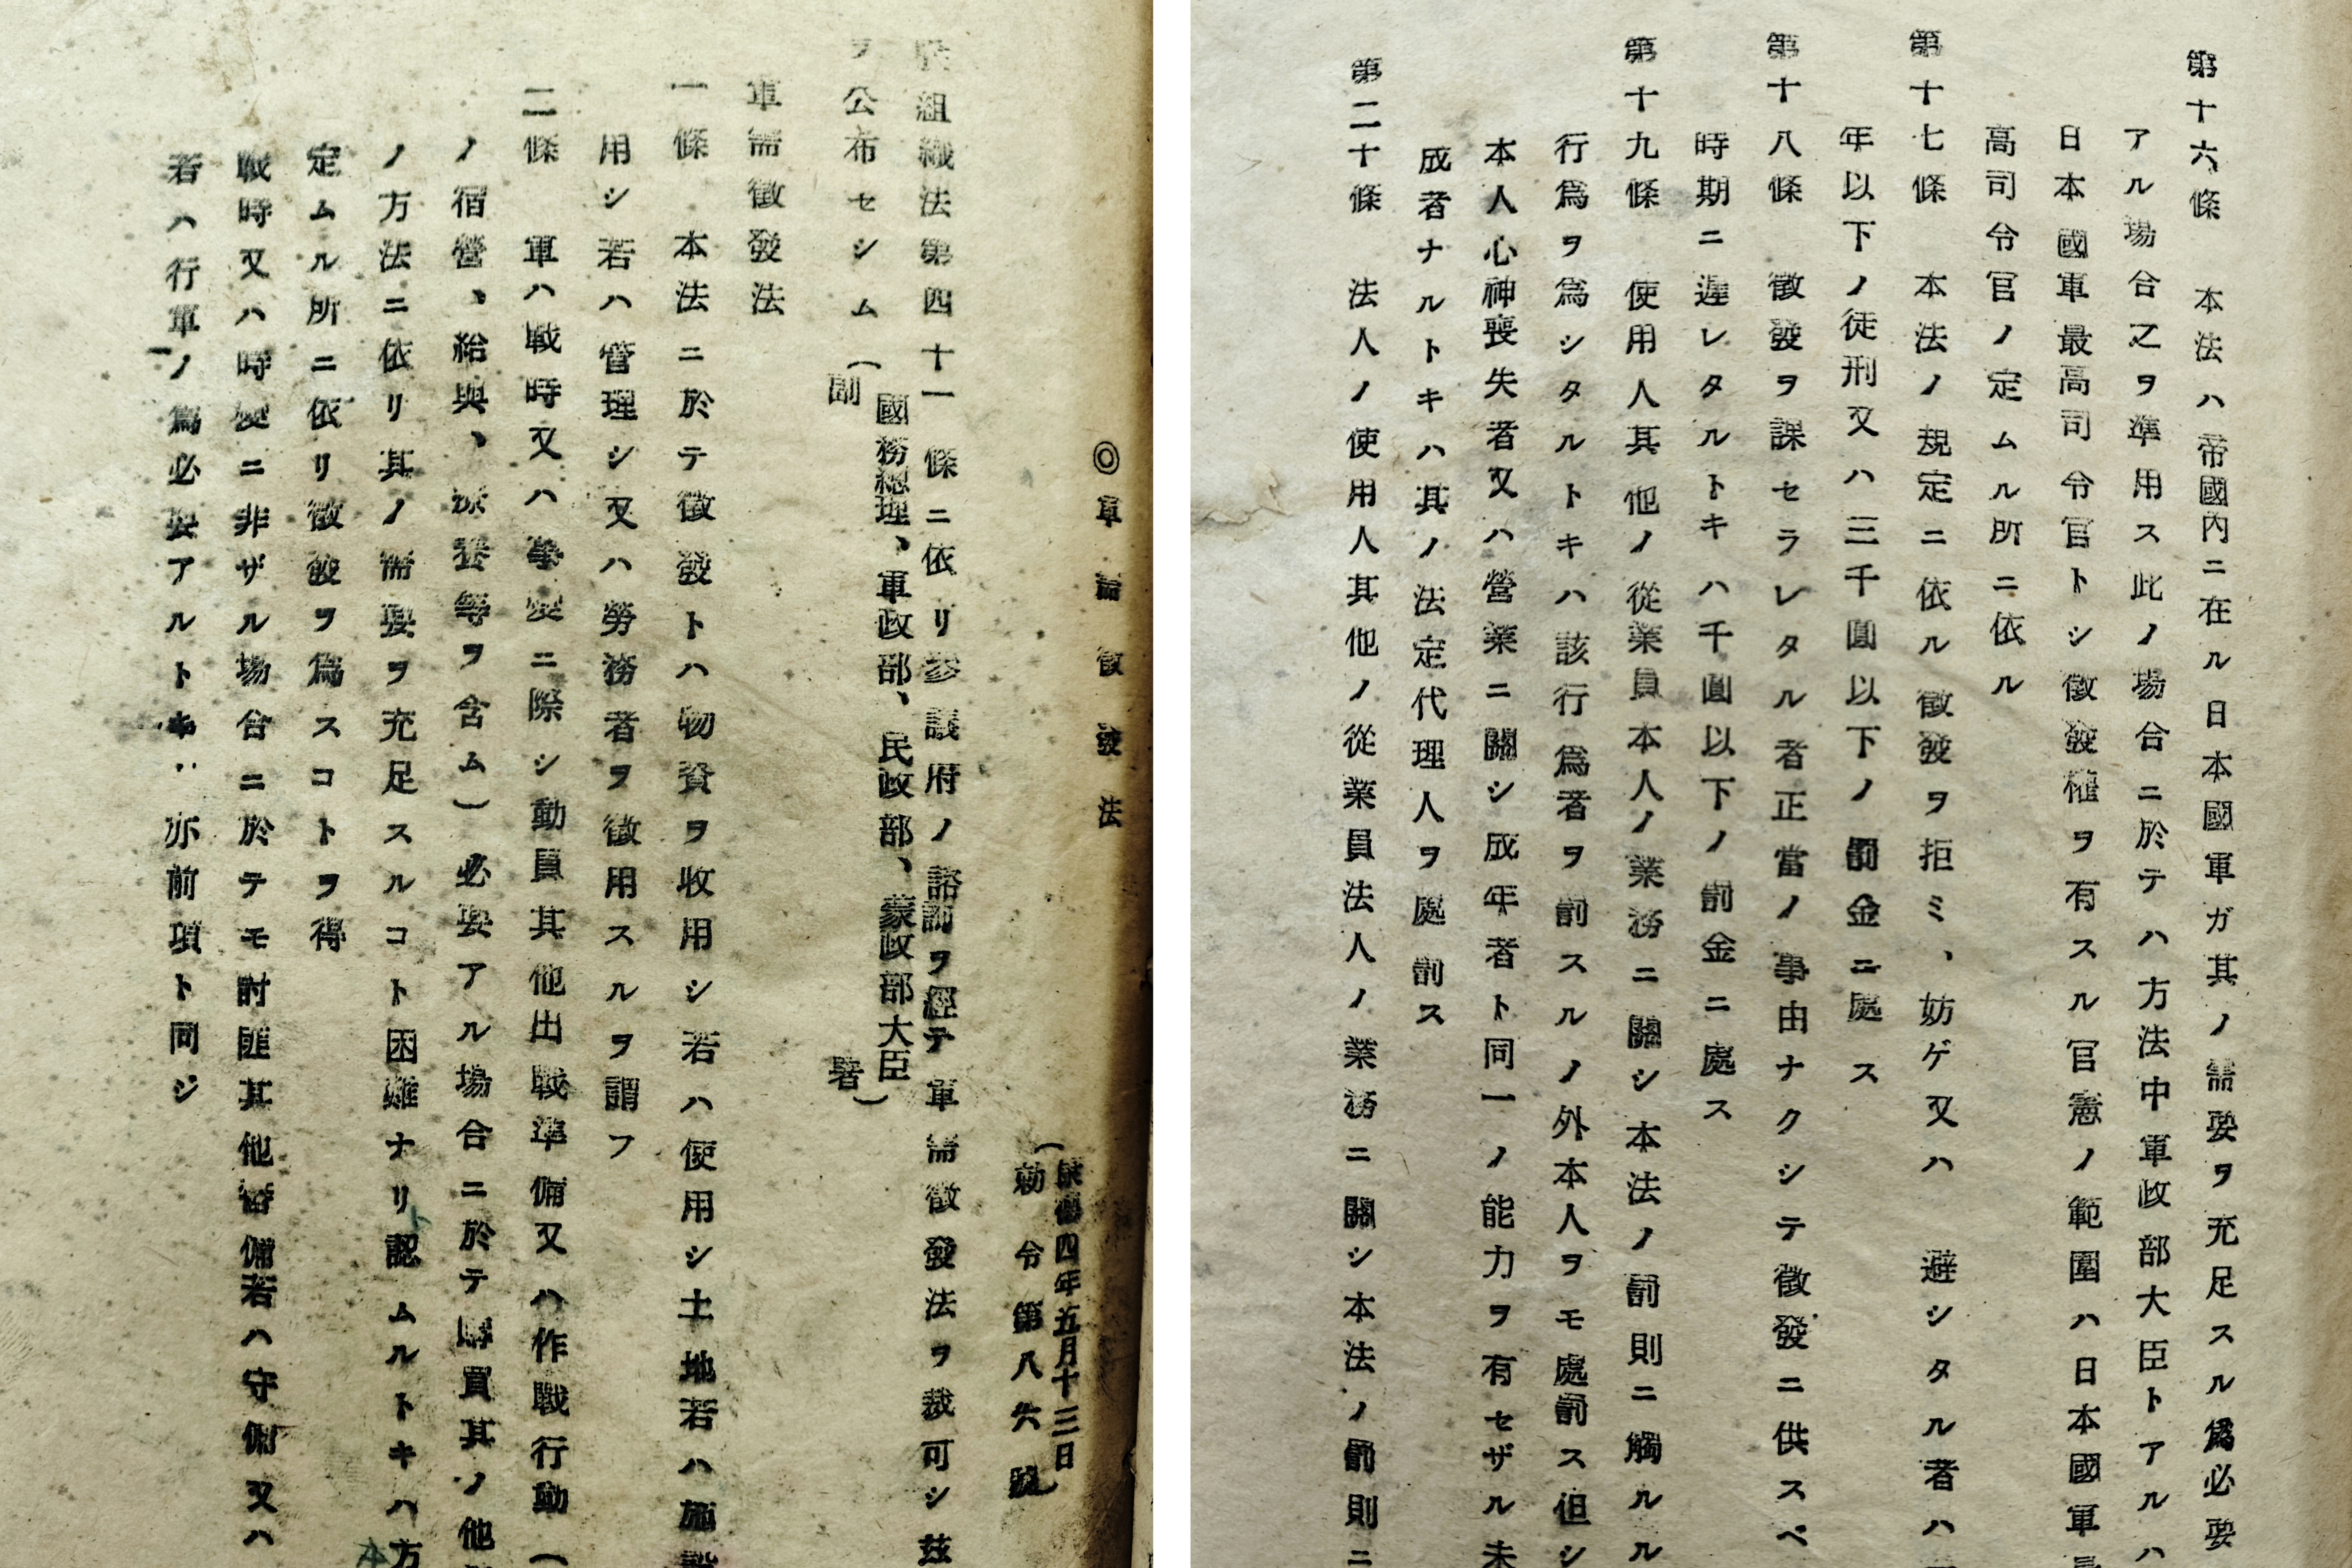 ◎軍需徵發法
(康德四年五月十三日
勅令第八六號)
組織法第四十一條ニ依リ參議府ノ諮詢ヲ經テ軍需徵發法ヲ裁可シ茲
ヲ公布セシム
(國務總理、軍政部、民政部、蒙政部大臣
副署)
軍需徵發法
一條 本法ニ於テ徵發トハ物資ヲ收用シ若ハ使用シ土地若ハ施設
用シ若ハ管理シ又ハ勞務者ヲ徵用スルヲ謂フ
二條 軍ハ戰時又ハ事變ニ際シ動員其他出戰準備又ハ作戰行動(
ノ宿營、給與、演習等ヲ含ム)必要アル場合ニ於テ購買其ノ他
ノ方法ニ依リ其ノ需要ヲ充足スルコト困難ナリ認ムルトキハ方
定ムル所ニ依リ徵發ヲ爲スコトヲ得
戰時又ハ時變ニ非ザル場合ニ於テモ討匪其他警備若ハ守備又ハ
若ハ行軍ノ爲必要アルトキ亦前項ト同ジ
第十六條 本法ハ帝國內ニ在ル日本國軍ガ其ノ需要ヲ充足スル爲必要
アル場合之ヲ準用ス此ノ場合ニ於テハ方法中軍政部大臣トアルハ
日本國軍最高司令官トシ徵發權ヲ有スル官憲ノ範圍ハ日本國軍最
高司令官ノ定ムル所ニ依ル
第十七條 本法ノ規定ニ依ル徵發ヲ拒ミ、妨ゲ又ハ 避シタル者ハ
年以下ノ徒刑又ハ三千圓以下ノ罰金ニ處ス
第十八條 徵發ヲ課セラレタル者正當ノ事由ナクシテ徵發ニ供スベ
時期ニ遲レタルトキハ千圓以下ノ罰金ニ處ス
第十九條 使用人其他ノ從業員本人ノ業務ニ關シ本法ノ罰則ニ觸ルル
行爲ヲ爲シタルトキハ該行爲者ヲ罰スルノ外本人ヲモ處罰ス但シ
本人心神喪失者又ハ營業ニ關シ成年者ト同一ノ能力ヲ有セザル未
成者ナルトキハ其ノ法定代理人ヲ處罰ス
第二十條 法人ノ使用人其他ノ從業員法人ノ業務ニ關シ本法ノ罰則ニ